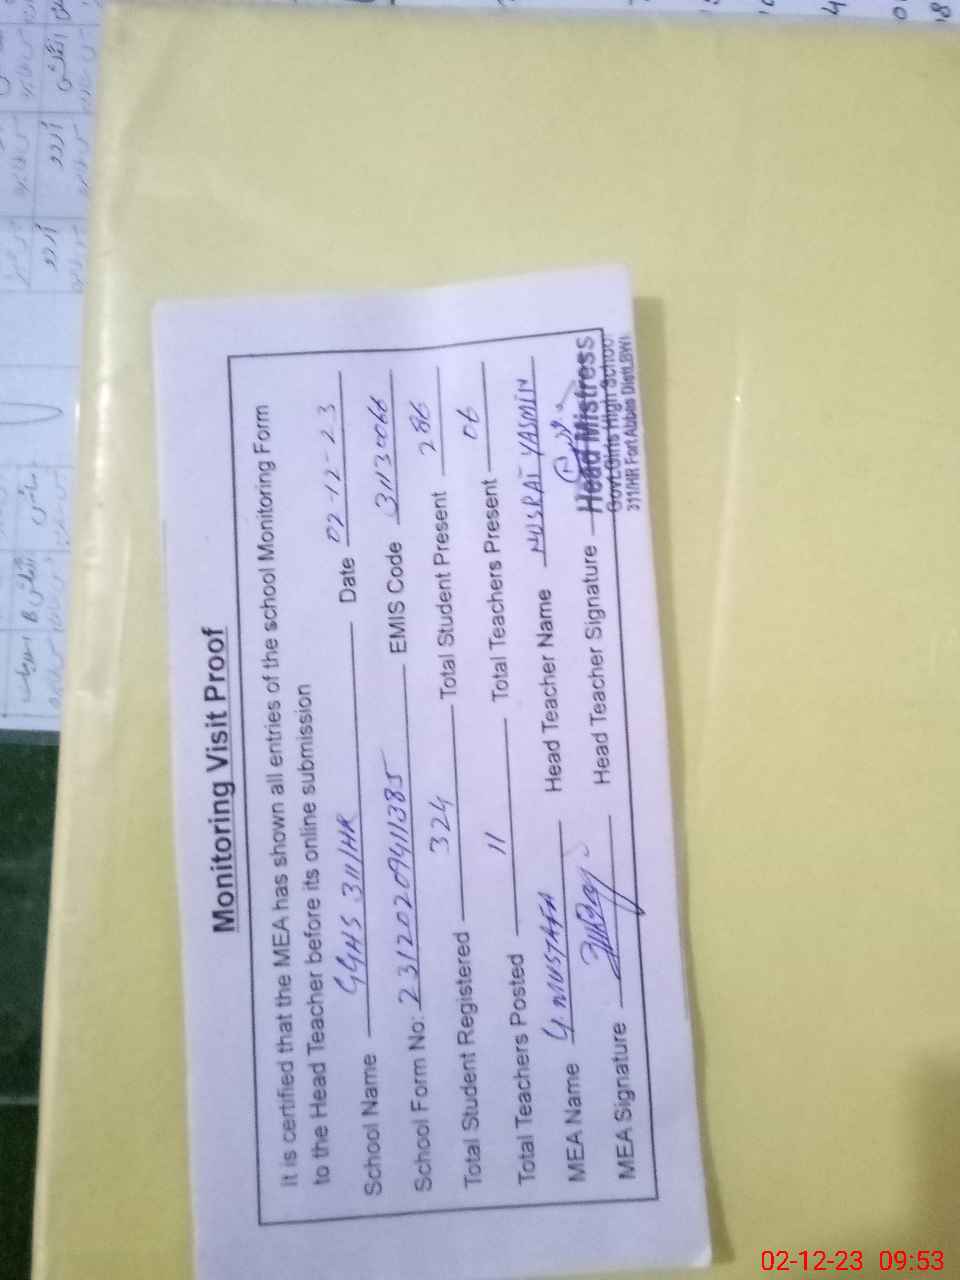 Monitoring Visit Proof
It is certified that the MEA has shown all entries of the school Monitoring Form
to the Head Teacher before its online submission
School Name GGHS 311/HR Date 02-12-23
School Form No: 23120209411385 EMIS Code 31130066
Total Student Registered 324 Total Student Present 286
Total Teachers Posted 11 Total Teachers Present 06
MEA Name G. MUSTAFA Head Teacher Name NUSRAT YASMIN
MEA Signature Head Teacher Signature
Head Mistress
Govt. Girls High School
311/HR Fort Abbas Distt. BWN
اردو
اردو
02-12-23 09:53